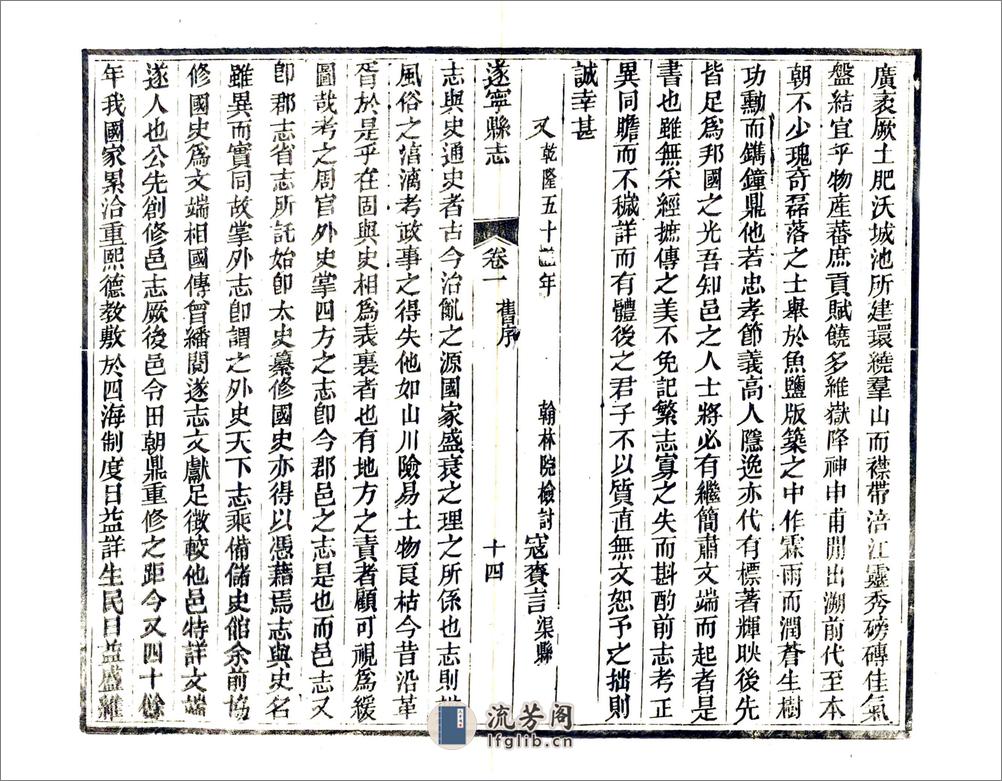 廣袤厥土肥沃城池所建環繞羣山而襟帶涪江靈秀磅礡佳氣
盤結宜乎物產蕃庶貢賦饒多維嶽降神申甫閒出溯前代至本
朝不少瑰奇磊落之士舉於魚鹽版築之中作霖雨而潤蒼生樹
功勳而鐫鐘鼎他若忠孝節義高人隱逸亦代有標著輝映後先
皆足爲邦國之光吾知邑之人士將必有繼簡肅文端而起者是
書也雖無采經摭傳之美不免記繁志寡之失而斟酌前志考正
異同贍而不穢詳而有體後之君子不以質直無文恕予之拙則
誠幸甚
又 乾隆五十年 翰林院檢討 寇賚言 渠縣
遂寧縣志 卷一 舊序 十四
志與史通史者古今治亂之源國家盛衰之理之所係也志則
風俗之漓考政事之得失他如山川險易土物良枯今昔沿革
胥於是乎在固與史相爲表裏者也有地方之責者顧可視爲緩
圖哉考之周官外史掌四方之志卽今郡邑之志是也而邑志又
卽郡志省志所託始卽太史纂修國史亦得以憑藉焉志與史名
雖異而實同故掌外志卽謂之外史天下志乘備儲史館余前協
修國史爲文端相國傳曾繙閱遂志文獻足徵較他邑特詳文端
遂人也公先創修邑志厥後邑令田朝鼎重修之距今又四十餘
年我國家累洽重熙德教敷於四海制度日益詳生民日益盛維
流芳阁
lfglib.cn